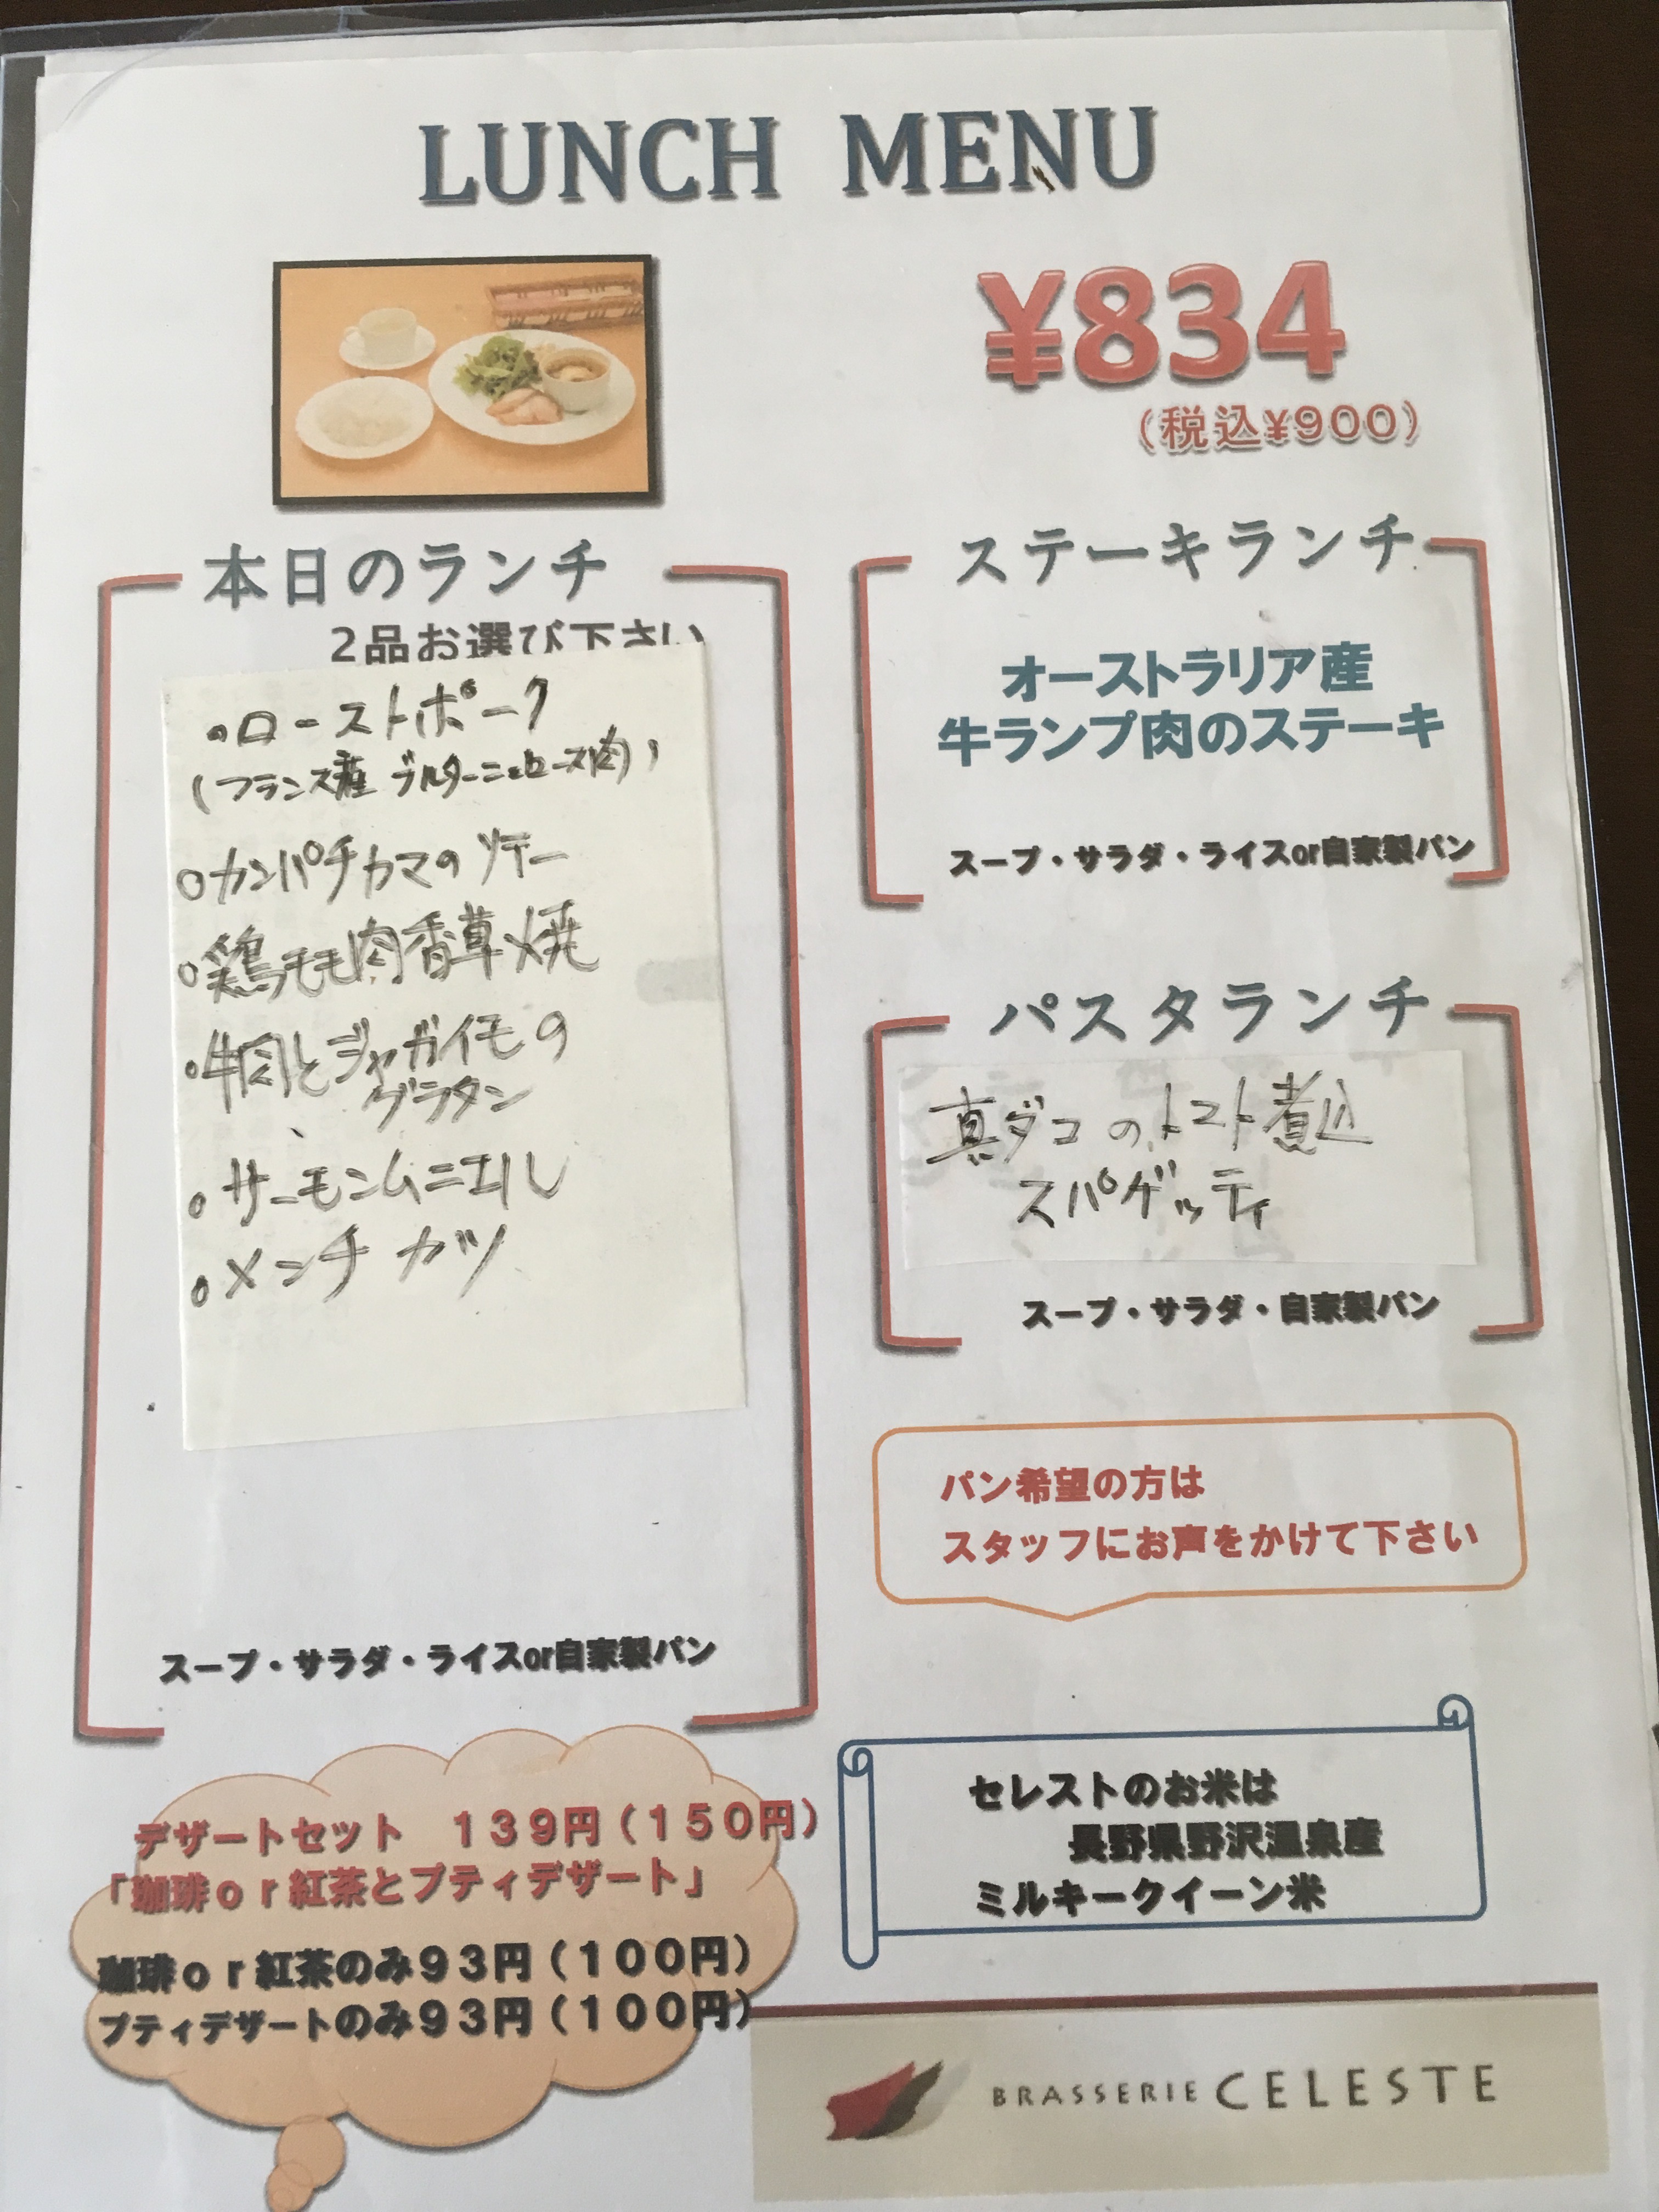 LUNCH MENU
¥834
（税込¥900）
本日のランチ
2品お選び下さい
・ローストポーク
(フランス産 ブルターニュロース肉)
○カンパチカマのソテー
○鶏モモ肉香草焼
・牛肉とジャガイモの
グラタン
○サーモンムニエル
○メンチカツ
スープ・サラダ・ライスor自家製パン
ステーキランチ
オーストラリア産
牛ランプ肉のステーキ
スープ・サラダ・ライスor自家製パン
パスタランチ
真ダコのトマト煮込
スパゲッティ
スープ・サラダ・自家製パン
パン希望の方は
スタッフにお声をかけて下さい
デザートセット　１３９円（１５０円）
「珈琲ｏｒ紅茶とプティデザート」
珈琲ｏｒ紅茶のみ９３円（１００円）
プティデザートのみ９３円（１００円）
セレストのお米は
長野県野沢温泉産
ミルキークイーン米
BRASSERIE CELESTE